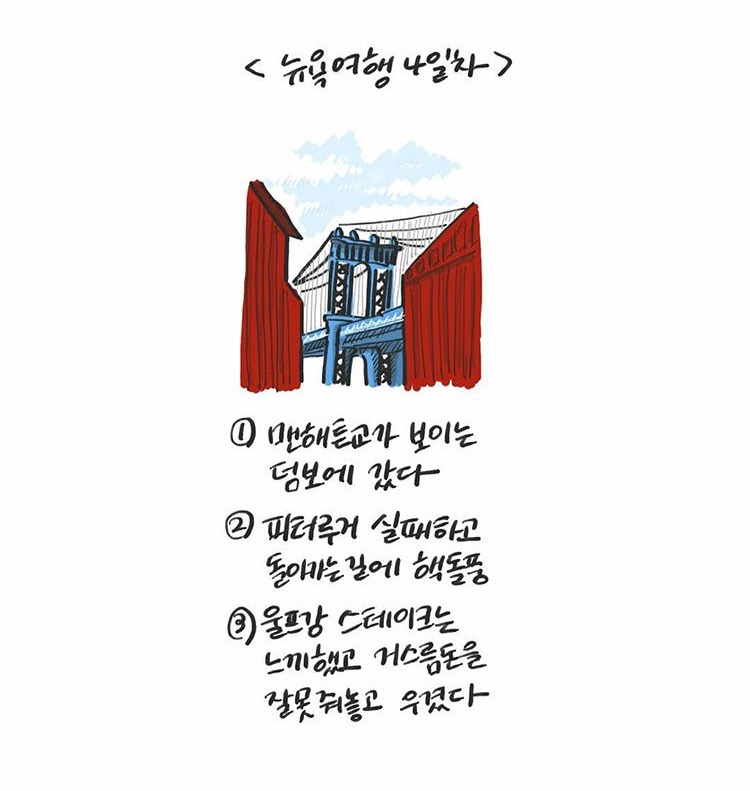 < 뉴욕여행 4일차 >
① 맨해튼교가 보이는
덤보에 갔다
② 피터루거 실패하고
돌아가는길에 핵돌풍
③ 울프강 스테이크는
느끼했고 거스름돈을
잘못줘놓고 우겼다